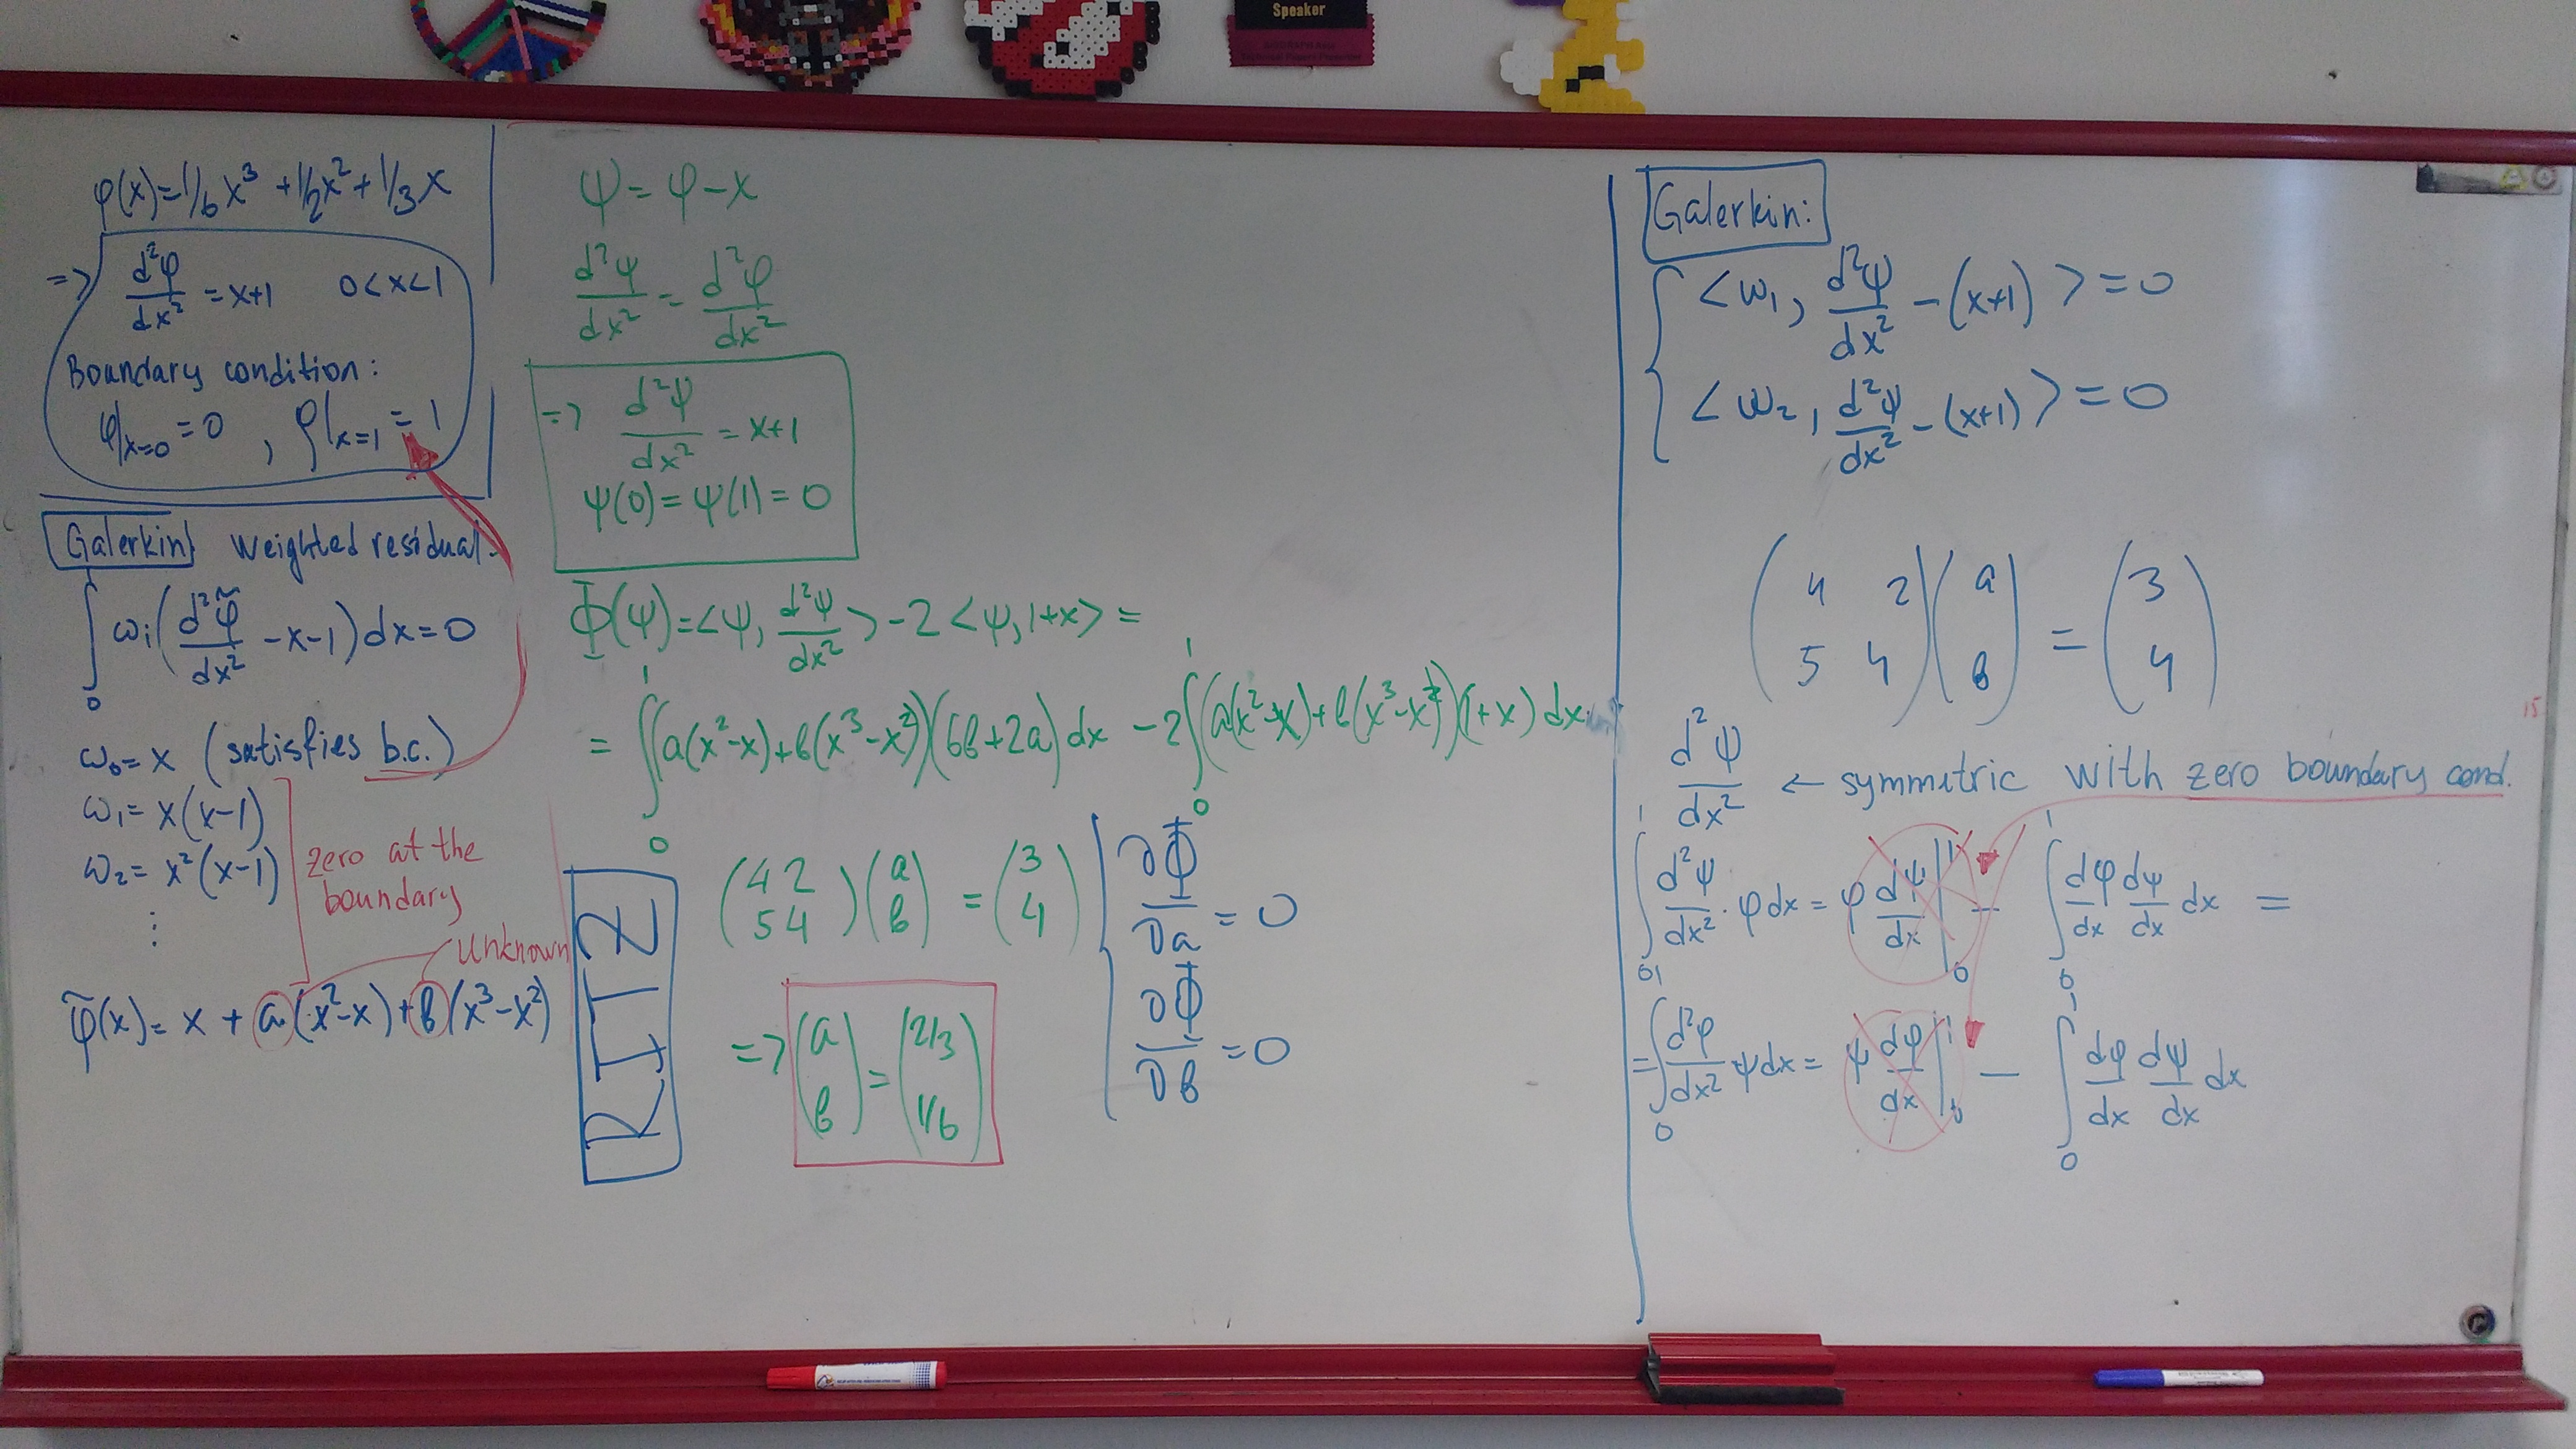 Speaker
φ(x)=1/6 x³ + 1/2 x² + 1/3 x
=> d²φ/dx² = x+1   0<x<1
Boundary condition:
φ|x=0 = 0 , φ|x=1 = 1
Galerkin weighted residual.
∫₀ ωi (d²φ̃/dx² - x - 1) dx = 0
ω₀ = x (satisfies b.c.)
ω₁ = x(x-1)
ω₂ = x²(x-1)
⋮
zero at the
boundary
Unknown
φ̃(x) = x + a(x²-x) + b(x³-x²)
ψ = φ - x
d²ψ/dx² = d²φ/dx²
=> d²ψ/dx² = x+1
ψ(0) = ψ(1) = 0
Φ(ψ) = <ψ, d²ψ/dx²> - 2 <ψ, 1+x> =
= ∫₀¹ (a(x²-x) + b(x³-x²))(6b+2a) dx - 2 ∫₀¹ (a(x²-x) + b(x³-x²))(1+x) dx
RITZ
(4 2
5 4) (a
b) = (3
4)
=> (a
b) = (2/3
1/6)
∂Φ/∂a = 0
∂Φ/∂b = 0
Galerkin:
<ω₁, d²ψ/dx² - (x+1)> = 0
<ω₂, d²ψ/dx² - (x+1)> = 0
(4 2
5 4) (a
b) = (3
4)
d²ψ/dx² ← symmetric with zero boundary cond.
∫₀¹ d²ψ/dx² · φ dx = φ dψ/dx |₀¹ - ∫₀¹ dφ/dx dψ/dx dx =
= ∫₀¹ d²φ/dx² ψ dx = ψ dφ/dx |₀¹ - ∫₀¹ dφ/dx dψ/dx dx
15